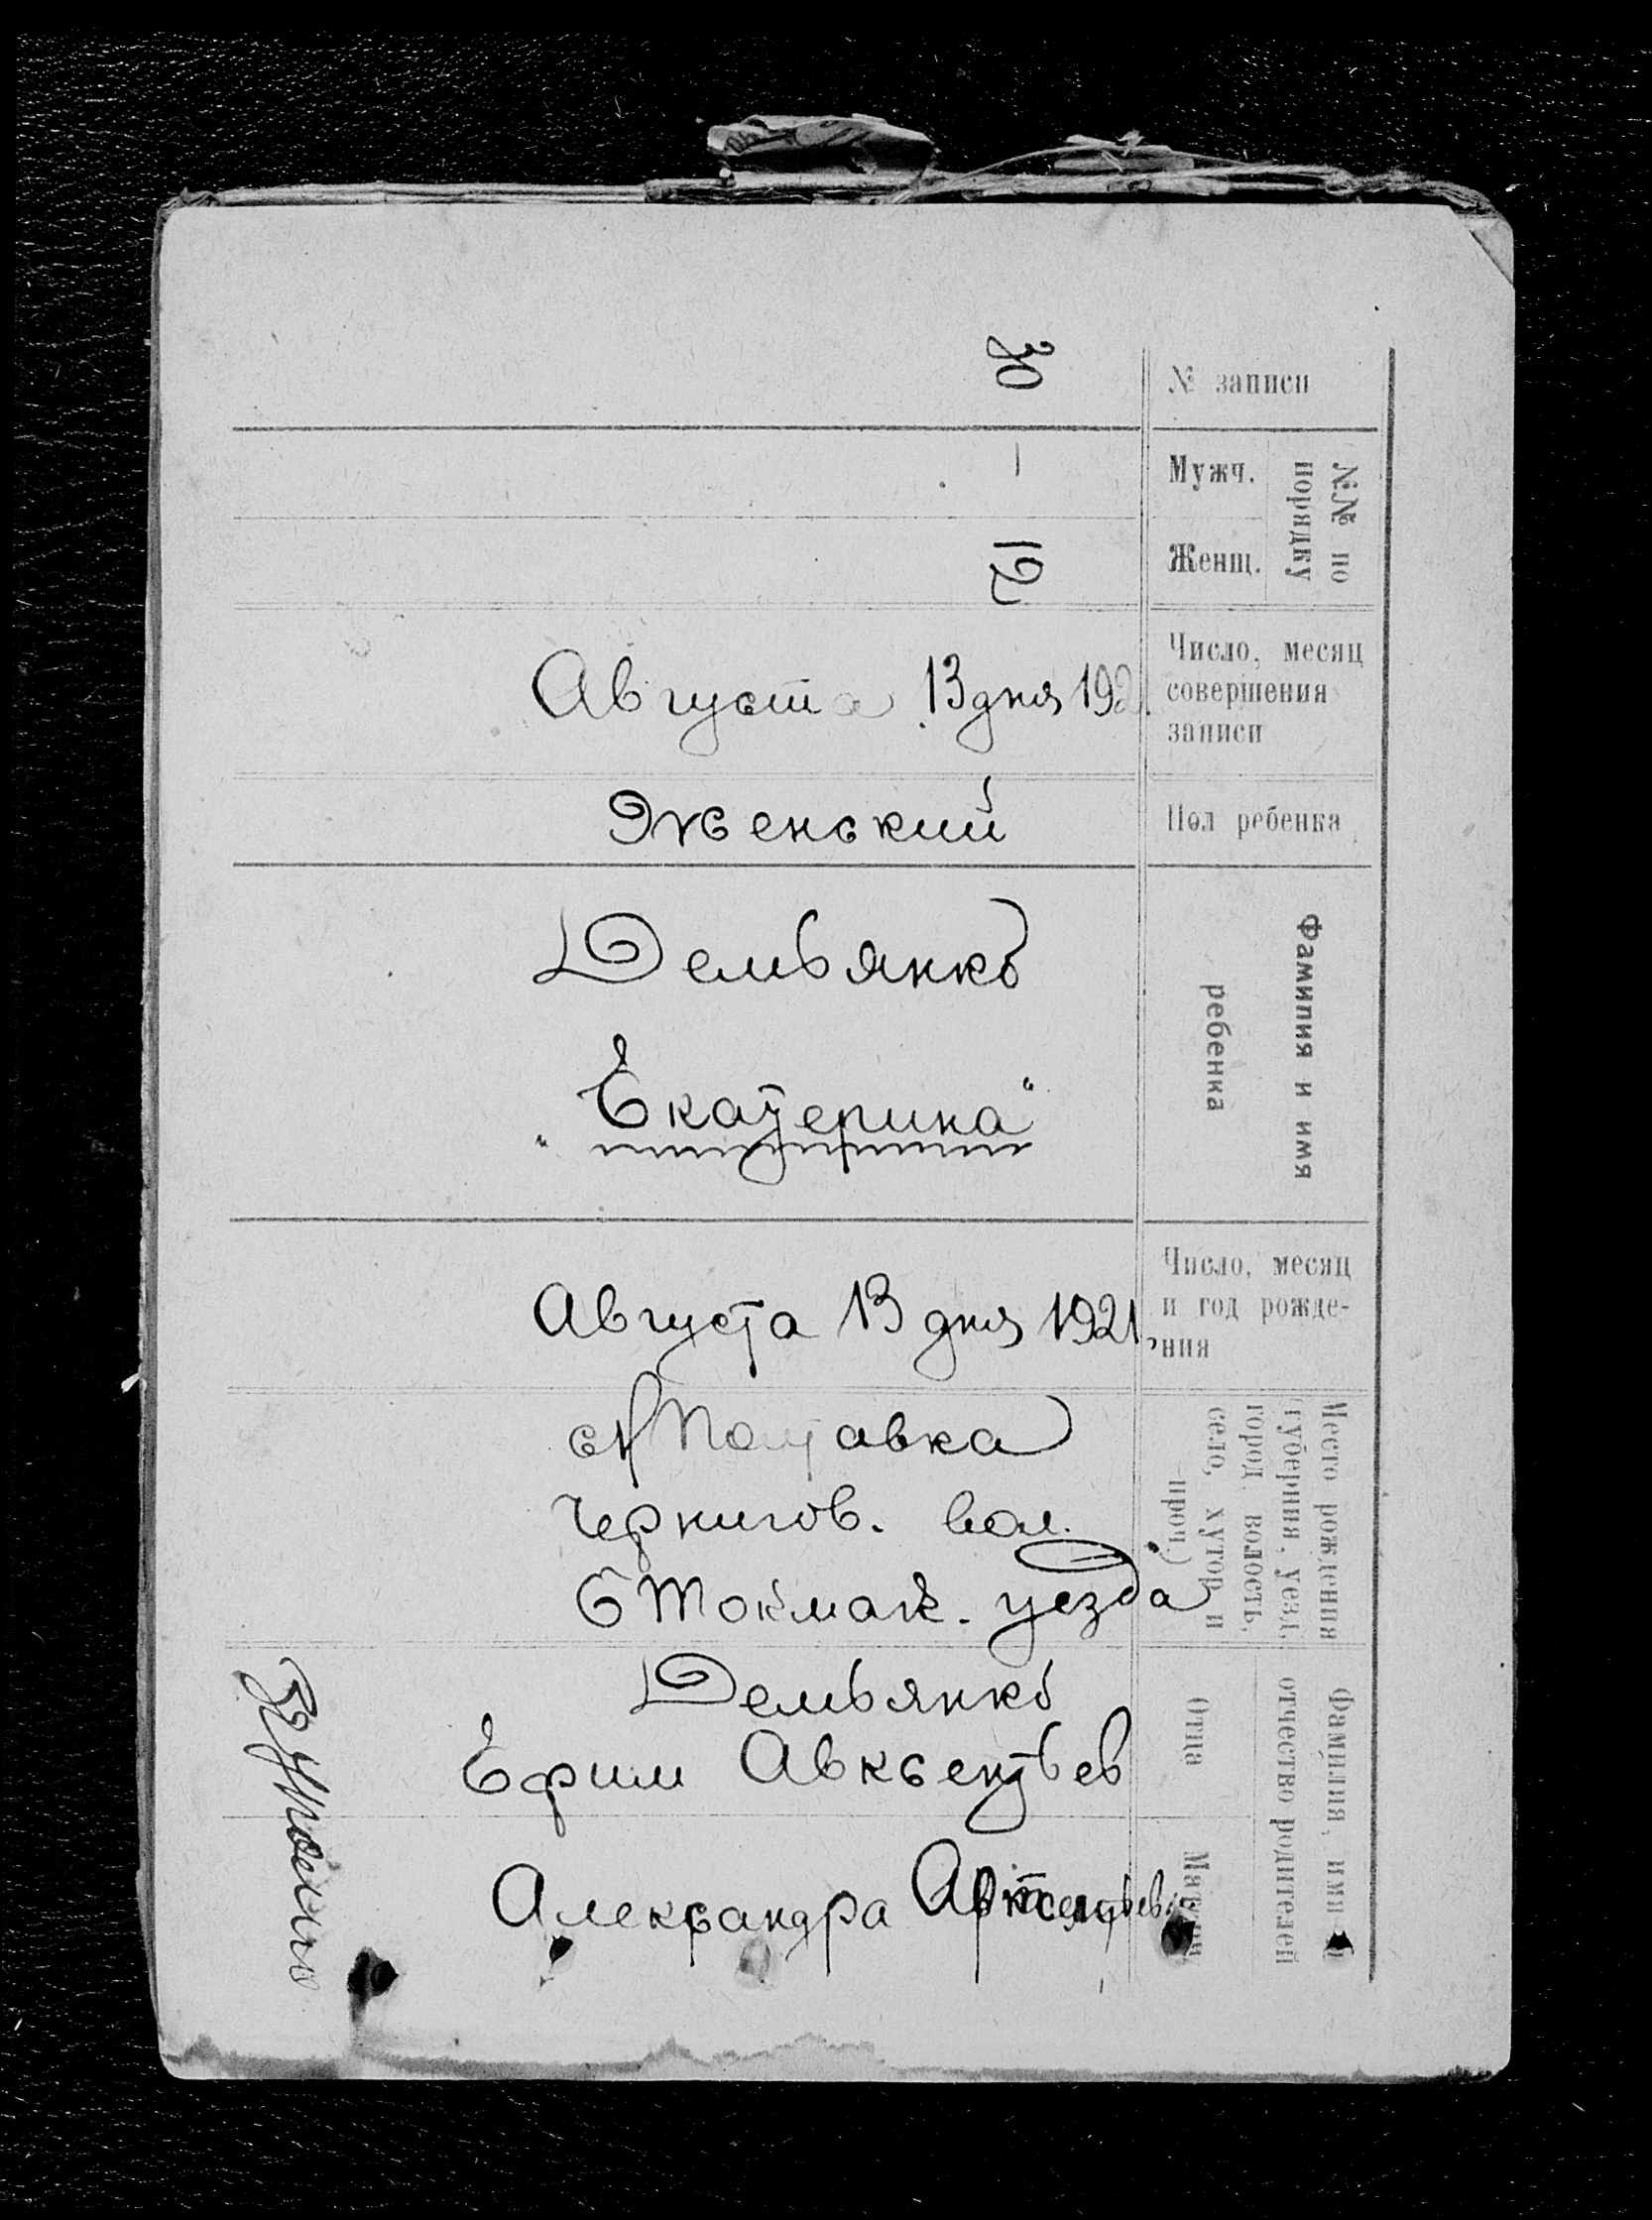 № записи
30
№№ по
порядку
Мужч.
—
Женщ.
12
Число, месяц
совершения
записи
Августа 13 дня 192
Пол ребенка
Женский
Фамилия и имя
ребенка
Демьянко
"Екатерина"
Число, месяц
и год рожде-
ния
Августа 13 дня 1921
Место рождения
(губерния, уезд,
город, волость,
село, хутор и
проч.)
Полтавка
Чернигов. вол.
Б Токмак. уезда
Фамилия, имя и
отчество родителей
Отца
Демьянко
Ефим Авксентьев
Матери
Александра